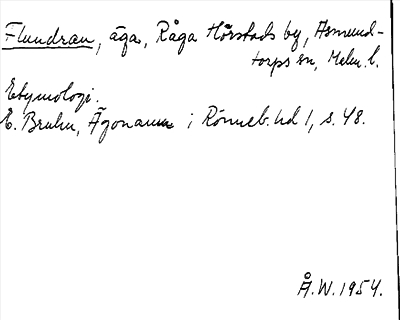 Flundran, äga, Råga Hörstads by, Asmund-
torps sn, Malm. l.
Etymologi.
E. Bruhn, Ägonamn i Rönneb. hd 1, s. 48.
Å.W. 1954.